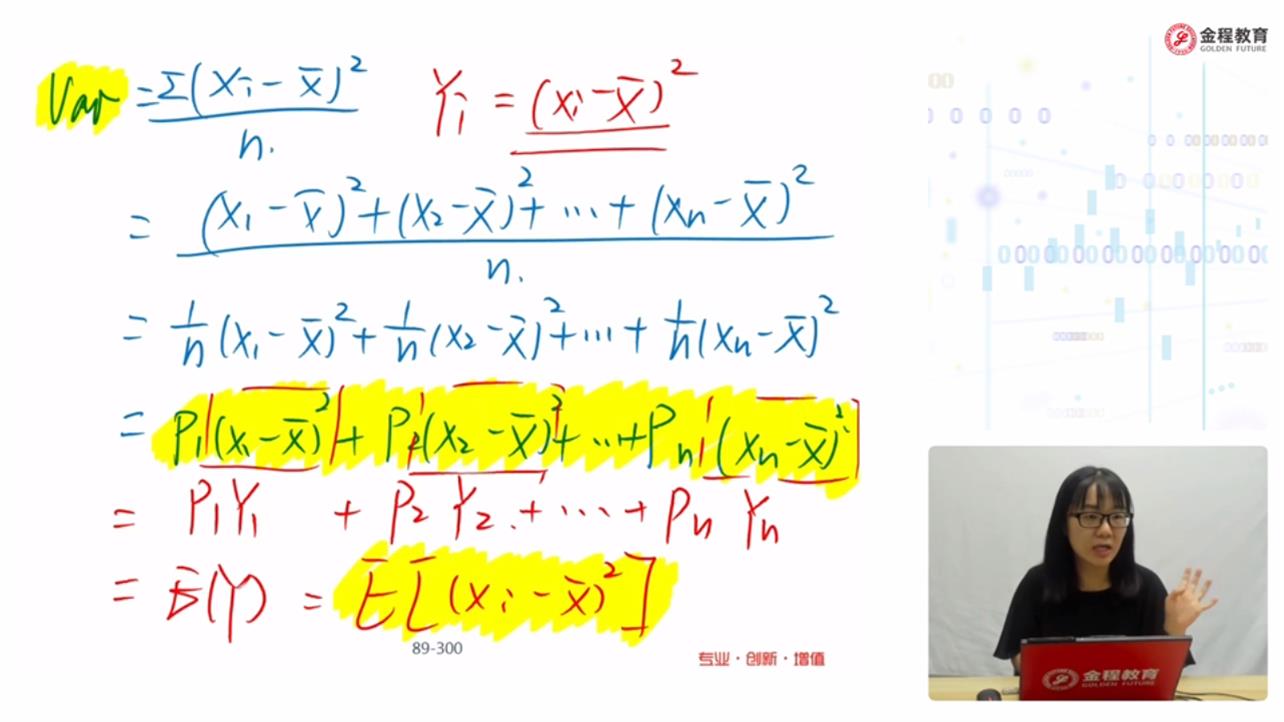 金程教育
GOLDEN FUTURE
Var = Σ(xi - x̄)² / n. Yi = (xi - x̄)²
= (x1 - x̄)² + (x2 - x̄)² + ... + (xn - x̄)² / n.
= 1/n (x1 - x̄)² + 1/n (x2 - x̄)² + ... + 1/n (xn - x̄)²
= P1 (x1 - x̄)² + P2 (x2 - x̄)² + ... + Pn (xn - x̄)²
= P1 Y1 + P2 Y2 + ... + Pn Yn
= E(Y) = E[(xi - x̄)²]
89-300
专业·创新·增值
金程教育
GOLDEN FUTURE